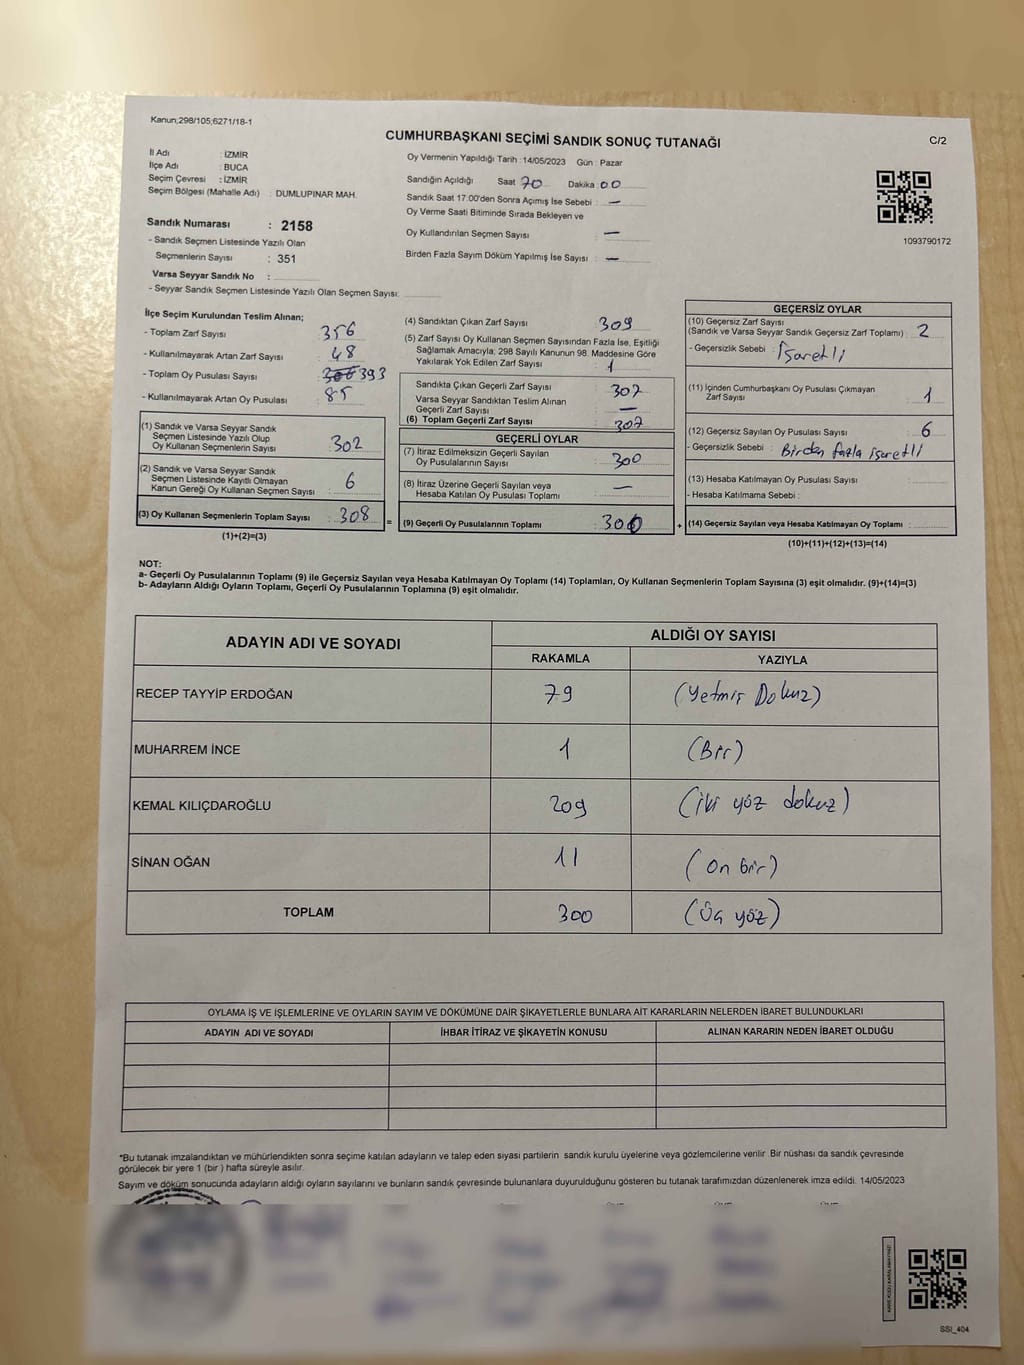 Kanun;298/105;6271/18-1
CUMHURBAŞKANI SEÇİMİ SANDIK SONUÇ TUTANAĞI
C/2
İl Adı : İZMİR
İlçe Adı : BUCA
Seçim Çevresi : İZMİR
Seçim Bölgesi (Mahalle Adı) : DUMLUPINAR MAH.
Sandık Numarası : 2158
- Sandık Seçmen Listesinde Yazılı Olan
Seçmenlerin Sayısı : 351
Varsa Seyyar Sandık No :
- Seyyar Sandık Seçmen Listesinde Yazılı Olan Seçmen Sayısı:
Oy Vermenin Yapıldığı Tarih : 14/05/2023 Gün : Pazar
Sandığın Açıldığı Saat Dakika : 00
Sandık Saat 17.00'den Sonra Açımış İse Sebebi : —
Oy Verme Saati Bitiminde Sırada Bekleyen ve
Oy Kullandırılan Seçmen Sayısı : —
Birden Fazla Sayım Döküm Yapılmış İse Sayısı : —
1093790172
İlçe Seçim Kurulundan Teslim Alınan;
- Toplam Zarf Sayısı : 356
- Kullanılmayarak Artan Zarf Sayısı : 48
- Toplam Oy Pusulası Sayısı : 393
- Kullanılmayarak Artan Oy Pusulası : 85
(1) Sandık ve Varsa Seyyar Sandık
Seçmen Listesinde Yazılı Olup
Oy Kullanan Seçmenlerin Sayısı : 302
(2) Sandık ve Varsa Seyyar Sandık
Seçmen Listesinde Kayıtlı Olmayan
Kanun Gereği Oy Kullanan Seçmen Sayısı : 6
(3) Oy Kullanan Seçmenlerin Toplam Sayısı : 308
=
(1)+(2)=(3)
(4) Sandıktan Çıkan Zarf Sayısı : 309
(5) Zarf Sayısı Oy Kullanan Seçmen Sayısından Fazla İse, Eşitliği
Sağlamak Amacıyla; 298 Sayılı Kanunun 98. Maddesine Göre
Yakılarak Yok Edilen Zarf Sayısı : 1
Sandıkta Çıkan Geçerli Zarf Sayısı : 307
Varsa Seyyar Sandıktan Teslim Alınan
Geçerli Zarf Sayısı : —
(6) Toplam Geçerli Zarf Sayısı : 307
GEÇERLİ OYLAR
(7) İtiraz Edilmeksizin Geçerli Sayılan
Oy Pusulalarının Sayısı : 300
(8) İtiraz Üzerine Geçerli Sayılan veya
Hesaba Katılan Oy Pusulası Toplamı : —
(9) Geçerli Oy Pusulalarının Toplamı : 300
+
GEÇERSİZ OYLAR
(10) Geçersiz Zarf Sayısı
(Sandık ve Varsa Seyyar Sandık Geçersiz Zarf Toplamı) : 2
- Geçersizlik Sebebi : İşaretli
(11) İçinden Cumhurbaşkanı Oy Pusulası Çıkmayan
Zarf Sayısı : 1
(12) Geçersiz Sayılan Oy Pusulası Sayısı : 6
- Geçersizlik Sebebi : Birden fazla işaretli
(13) Hesaba Katılmayan Oy Pusulası Sayısı :
- Hesaba Katılmama Sebebi :
(14) Geçersiz Sayılan veya Hesaba Katılmayan Oy Toplamı :
(10)+(11)+(12)+(13)=(14)
NOT:
a- Geçerli Oy Pusulalarının Toplamı (9) ile Geçersiz Sayılan veya Hesaba Katılmayan Oy Toplamı (14) Toplamları, Oy Kullanan Seçmenlerin Toplam Sayısına (3) eşit olmalıdır. (9)+(14)=(3)
b- Adayların Aldığı Oyların Toplamı, Geçerli Oy Pusulalarının Toplamına (9) eşit olmalıdır.
ADAYIN ADI VE SOYADI
ALDIĞI OY SAYISI
RAKAMLA YAZIYLA
RECEP TAYYİP ERDOĞAN 79 (Yetmiş Dokuz)
MUHARREM İNCE 1 (Bir)
KEMAL KILIÇDAROĞLU 209 (iki yüz dokuz)
SİNAN OĞAN 11 (On bir)
TOPLAM 300 (Üç yüz)
OYLAMA İŞ VE İŞLEMLERİNE VE OYLARIN SAYIM VE DÖKÜMÜNE DAİR ŞİKAYETLERLE BUNLARA AİT KARARLARIN NELERDEN İBARET BULUNDUKLARI
ADAYIN ADI VE SOYADI İHBAR İTİRAZ VE ŞİKAYETİN KONUSU ALINAN KARARIN NEDEN İBARET OLDUĞU
*Bu tutanak imzalandıktan ve mühürlendikten sonra seçime katılan adayların ve talep eden siyasi partilerin sandık kurulu üyelerine veya gözlemcilerine verilir .Bir nüshası da sandık çevresinde
görülecek bir yere 1 (bir ) hafta süreyle asılır.
Sayım ve döküm sonucunda adayların aldığı oyların sayılarını ve bunların sandık çevresinde bulunanlara duyurulduğunu gösteren bu tutanak tarafımızdan düzenlenerek imza edildi. 14/05/2023
SSI_404